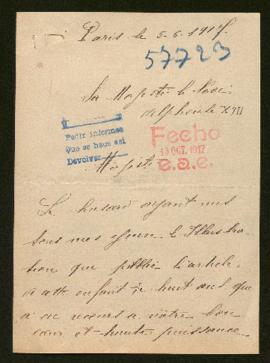 Paris le 5-6-1917.
57723
Sa Majesté le Roi
Alphonse XIII
Pedir informes
Que se haus así
Devolver
Fecho
13 OCT. 1917
e.a.e.
Majesté
Le hasard ayant mis
sous mes yeux le Illustra
tion que publie l'article
à cet enfant de huit ans que
a eu recours à votre bon
cœur et haute puissance